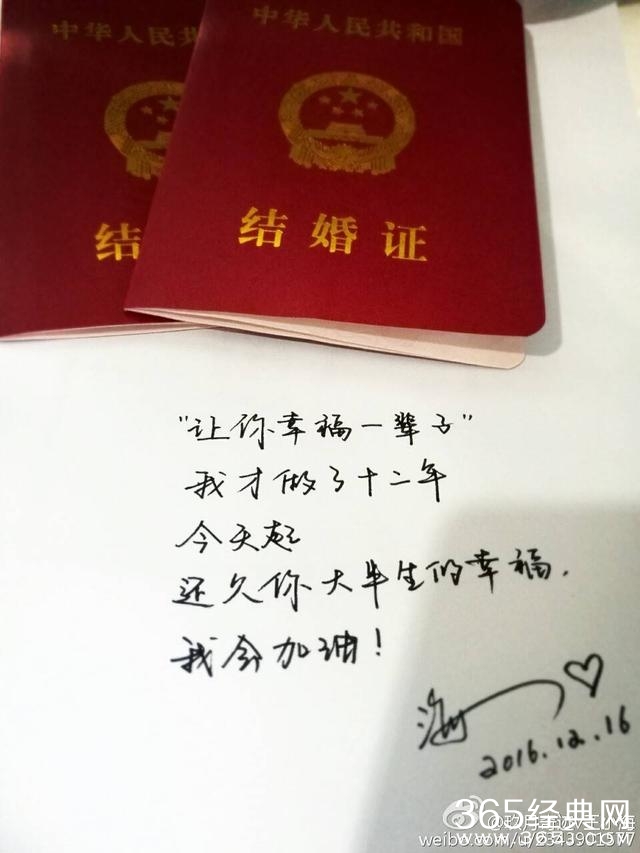 中华人民共
中华人民共和国
结
结婚证
"让你幸福一辈子"
我才做了十二年
今天起
还久你大半生的幸福.
我会加油!
海
2016.12.16
365经典网
@玖月奇迹V王小海